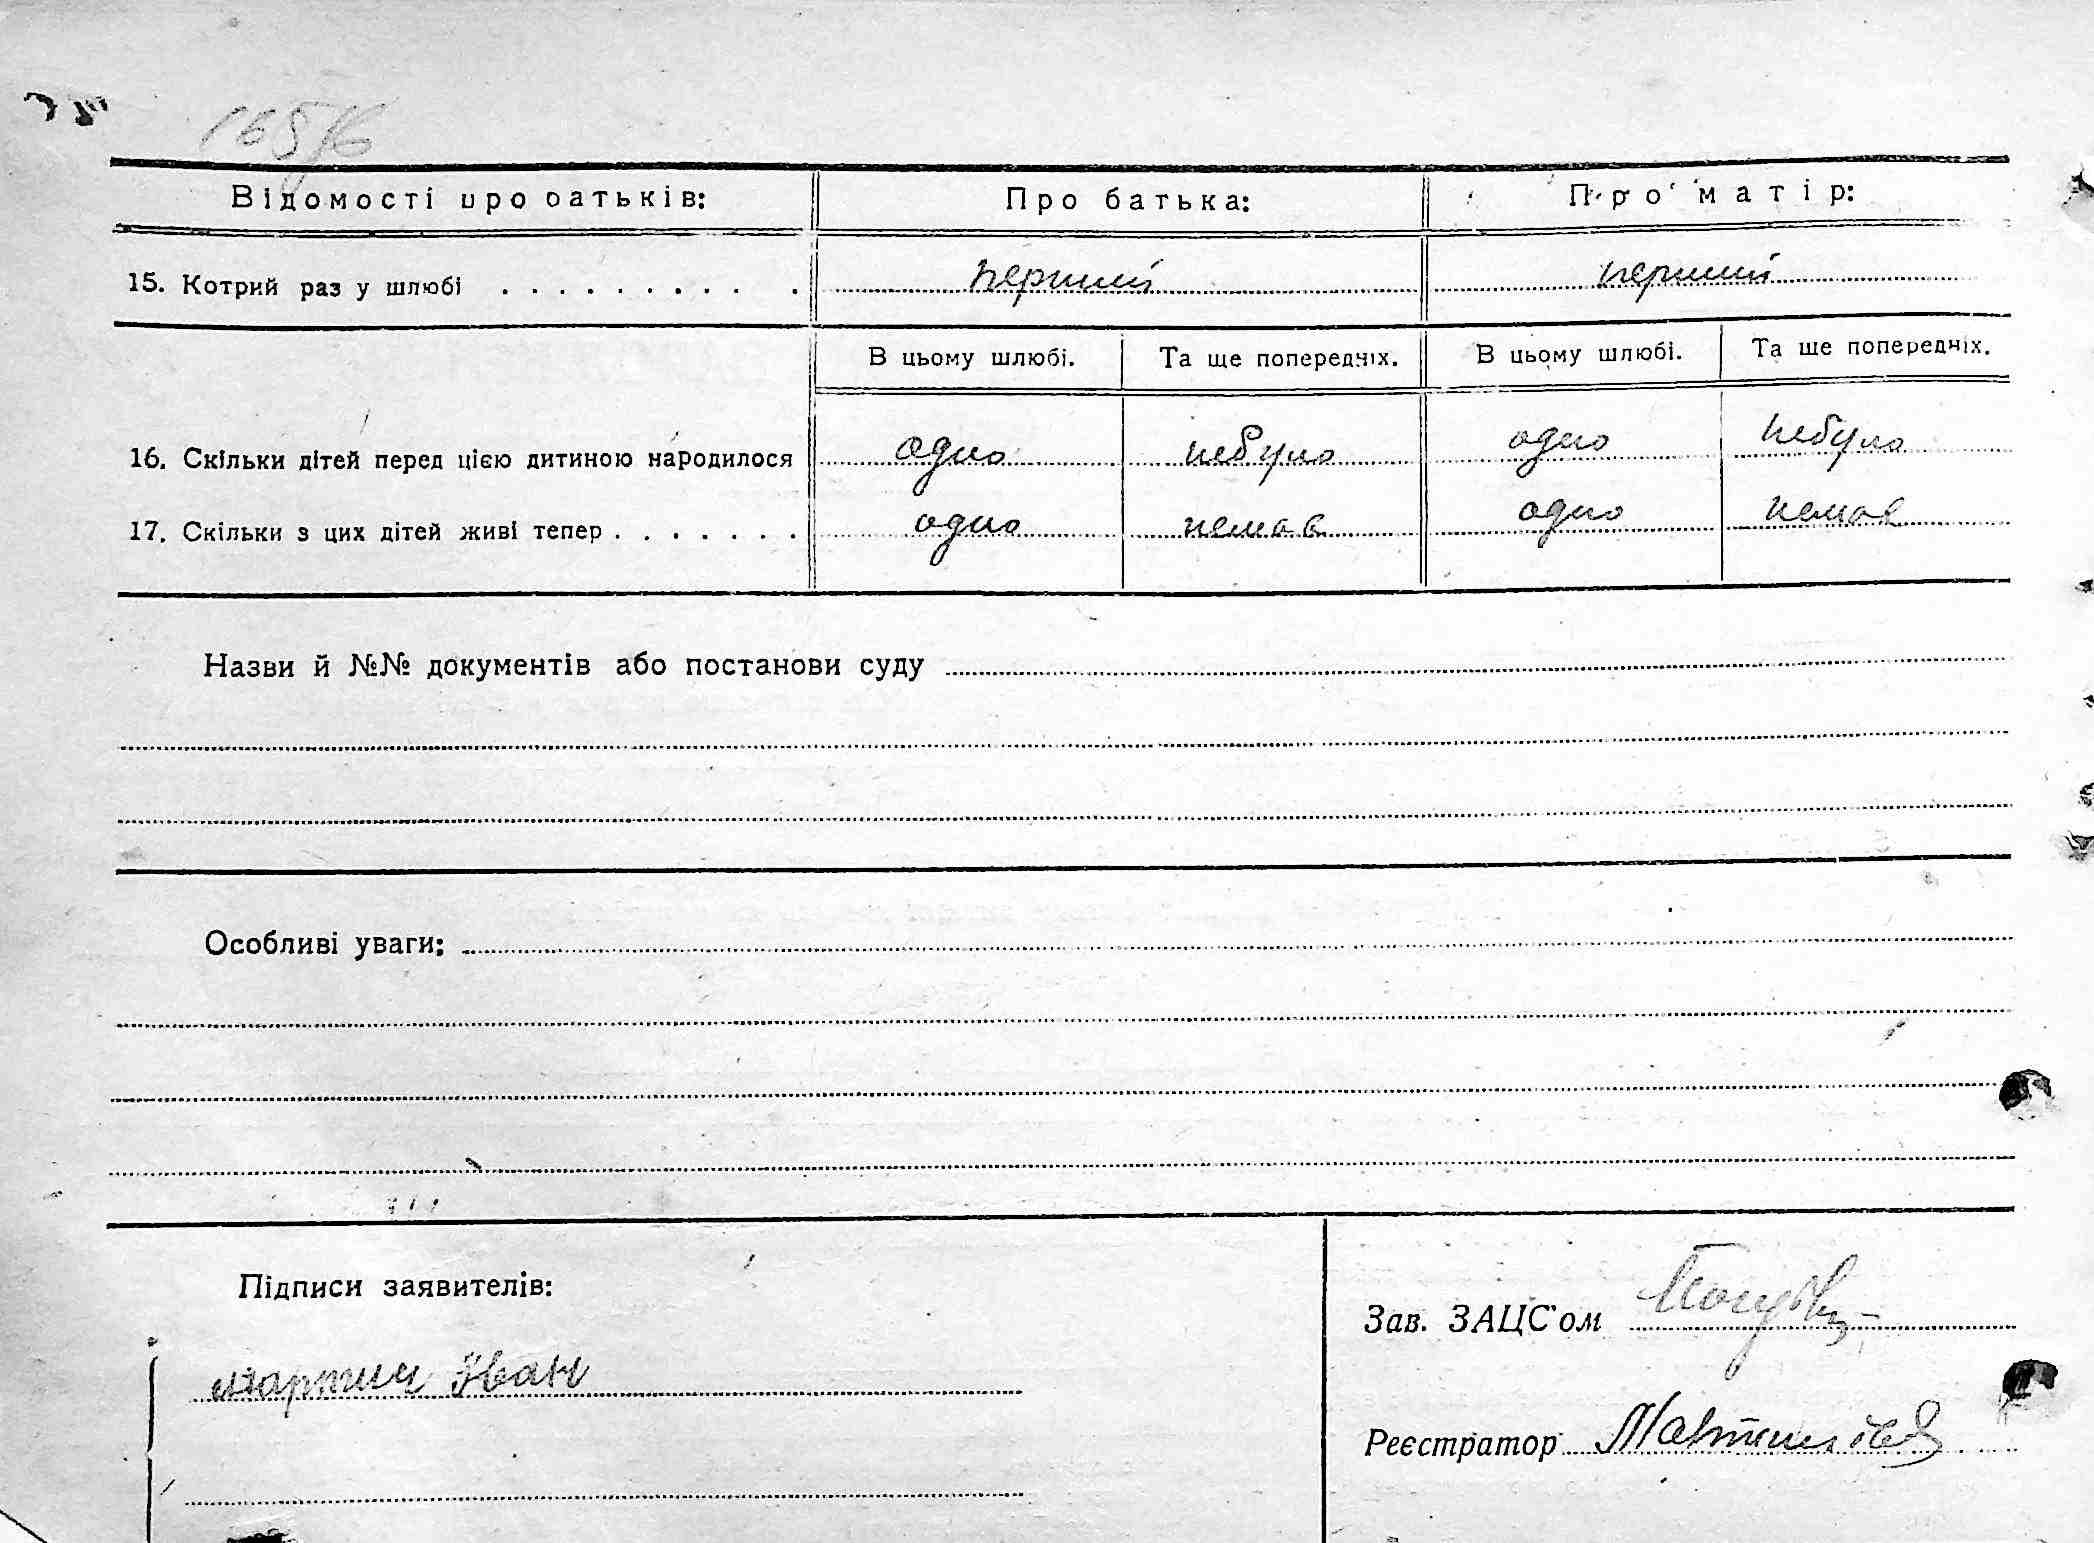 Відомості про батьків: Про батька: Про матір:
15. Котрий раз у шлюбі . . . . . . . . . . . перший перший
В цьому шлюбі. Та ще попередніх. В цьому шлюбі. Та ще попередніх.
16. Скільки дітей перед цією дитиною народилося одно небуло одно небуло
17. Скільки з цих дітей живі тепер . . . . . . . одно немає одно немає
Назви й №№ документів або постанови суду
Особливі уваги:
Підписи заявителів:
Зав. ЗАЦС'ом
Мартич Іван
Реєстратор